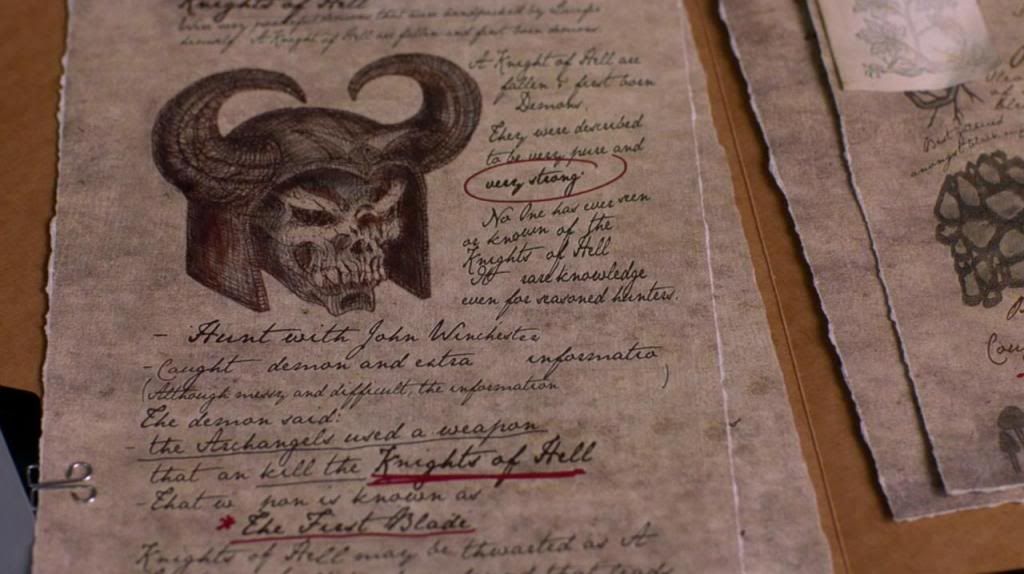 Knights of Hell
himself. A Knight of Hell are fallen and first born demons.
A Knight of Hell are
fallen & first born
Demons.
They were described
to be very pure and
very strong.
No One has ever seen
or known of the
Knights of Hell
It rare knowledge
even for seasoned hunters.
- Hunt with John Winchester
- Caught demon and extra informatio
(Although messy and difficult, the information )
The demon said:
- the Archangels used a weapon
that an kill the Knights of Hell
- That w pon is known as
* The First Blade
Knights of Hell may be thwarted as A
Best
among